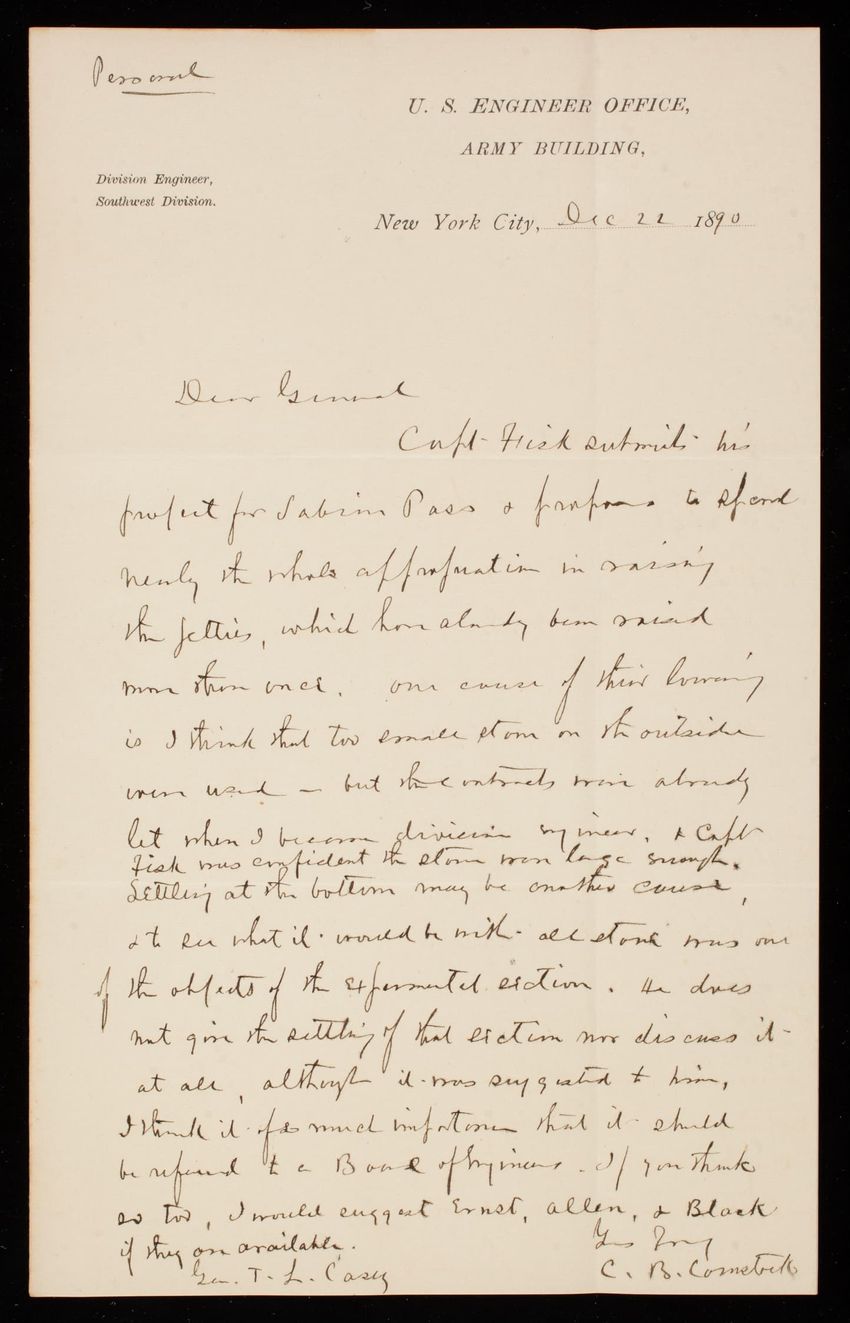 Personal
U. S. ENGINEER OFFICE,
ARMY BUILDING,
Division Engineer,
Southwest Division.
New York City, Dec 22 1890
Dear General
Capt Fisk submits his
project for Sabine Pass & proposes to spend
nearly the whole appropriation in raising
the jetties, which have already been raised
more than once. One cause of their lowering
is I think that too small stone on the outside
were used – but the contracts were already
let when I became division engineer, & Capt
Fisk was confident the stone were large enough.
Settling at the bottom may be another cause,
& to see what it would be with all stone was one
of the objects of the experimental section. He does
not give the settling of that section nor discuss it
at all, although it was suggested to him,
I think it of as much importance that it should
be referred to a Board of Engineers. If you think
so too, I would suggest Ernst, Allen, & Black
if they are available.
Yrs Truly
Gen. T. L. Casey
C. B. Comstock